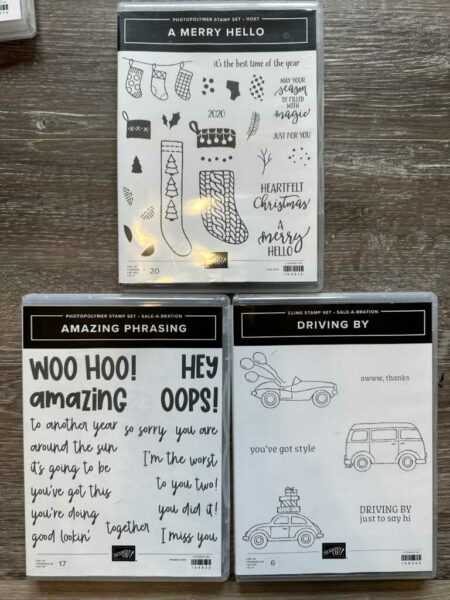 PHOTOPOLYMER STAMP SET • HOST
A MERRY HELLO
it's the best time of the year
MAY YOUR
season
BE FILLED
WITH
magic
2020
JUST FOR YOU
HEARTFELT
Christmas
A
merry
HELLO
20
PHOTOPOLYMER STAMP SET • SALE-A-BRATION
AMAZING PHRASING
WOO HOO! HEY
amazing OOPS!
to another year so sorry you are
around the sun
I'm the worst
it's going to be
to you two!
you've got this
you did it!
you're doing
together
good lookin'
I miss you
17
CLING STAMP SET • SALE-A-BRATION
DRIVING BY
awww, thanks
you've got style
DRIVING BY
just to say hi
6